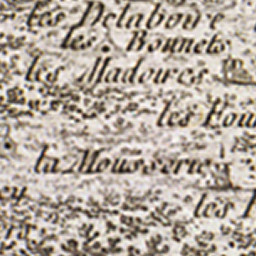 les Delaboire
les Bonnets
les Madoires
les Fou
la Mousserie
ey
les